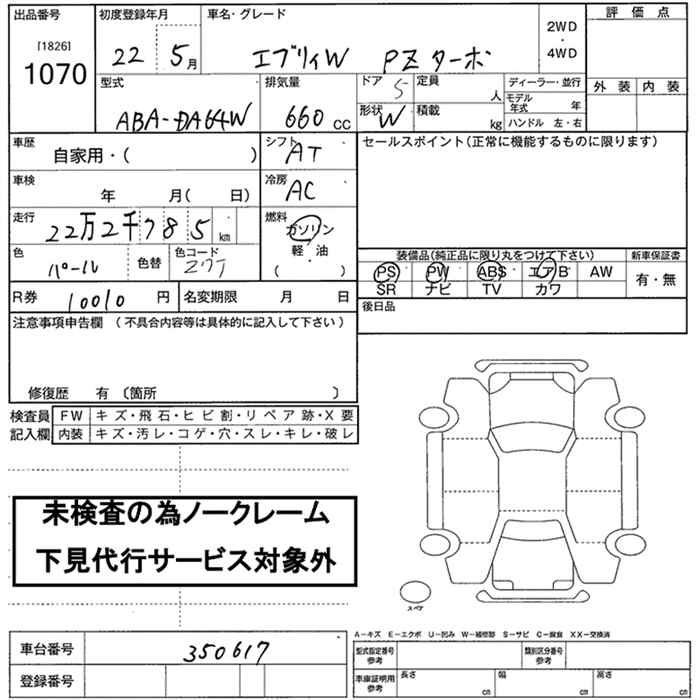 出品番号 初度登録年月 車名・グレード 評価点
[1826] 1070 22 5月 エブリィW PZターボ 2WD・4WD
外装 内装
型式 排気量 ドア 5 定員 人 ディーラー・並行
モデル年式 年
ABA-DA64W 660cc 形状 W 積載 kg ハンドル 左・右
車歴 自家用・( ) シフト AT セールスポイント(正常に機能するものに限ります)
車検 年 月( 日) 冷房 AC
走行 22万2千785km 燃料 ガソリン
軽・油
( )
色 パール 色替 色コード Z7T 装備品(純正品に限り丸をつけて下さい) 新車保証書
PS PW ABS エアB AW 有・無
SR ナビ TV カワ
R券 10010円 名変期限 月 日 後日品
注意事項申告欄 (不具合内容等は具体的に記入して下さい)
修復歴 有 〔箇所 〕
検査員記入欄 FW キズ・飛石・ヒビ割・リペア跡・X要
内装 キズ・汚レ・コゲ・穴・スレ・キレ・破レ
未検査の為ノークレーム
下見代行サービス対象外
スペア
A−キズ E−エクボ U−凹み W−補修跡 S−サビ C−腐食 XX−交換済
車台番号 350617 型式指定番号 参考 類別区分番号 参考
登録番号 車庫証明用 参考 長さ cm 幅 cm 高さ cm